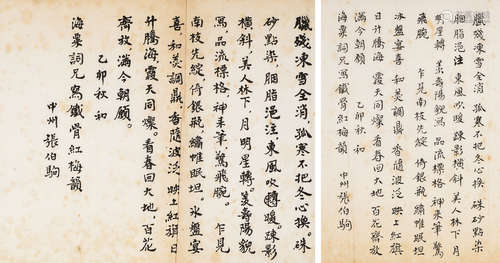 臘殘凍雪全消，孤寒不把冬心換。硃
砂點染，胭脂浥注，東風吹轉暖。踈影
橫斜，美人林下，月明星轉。羨壽陽貌
寫，品流標格，神來筆，驚飛腕。 乍見
南枝先綻，倚銀瓶，繡帷眠坦。氷盤宴
喜，和羹調鼎，香隨波泛。映上紅旗，日
升騰海，霞天同燦。看春回大地，百花
齊放，滿今朝願。
乙卯秋和
海粟詞兄寫鐵骨紅梅韻
中州張伯駒
臘殘凍雪全消 孤寒不把冬心換 硃砂點染
胭脂浥注 東風吹暖 踈影橫斜 美人林下 月
明星轉 羨壽陽貌寫 品流標格 神來筆 驚
飛腕 乍見南枝先綻 倚銀瓶 繡帷眠坦
氷盤宴喜 和羹調鼎 香隨波泛 映上紅旗
日升騰海 霞天同燦 看春回大地 百花齊放
滿今朝願 乙卯秋和
海粟詞兄寫鐵骨紅梅韻
中州張伯駒